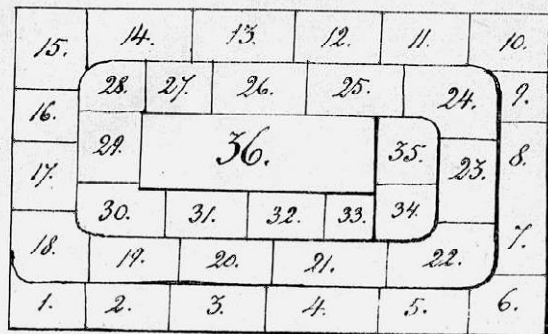 15. 14. 13. 12. 11. 10.
28. 27. 26. 25. 24. 9.
16.
29. 36. 35. 23. 8.
17.
30. 31. 32. 33. 34. 7.
18. 19. 20. 21. 22.
1. 2. 3. 4. 5. 6.